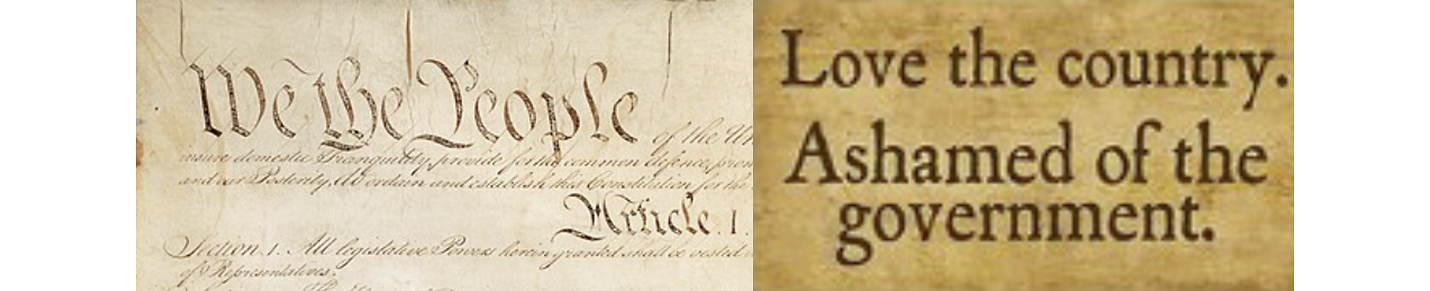 We the People of the Un
insure domestic Tranquility, provide for the common defence, prom
and our Posterity, do ordain and establish this Constitution for the
Article. I.
Section. 1. All legislative Powers herein granted shall be vested
of Representatives.
Love the country.
Ashamed of the
government.